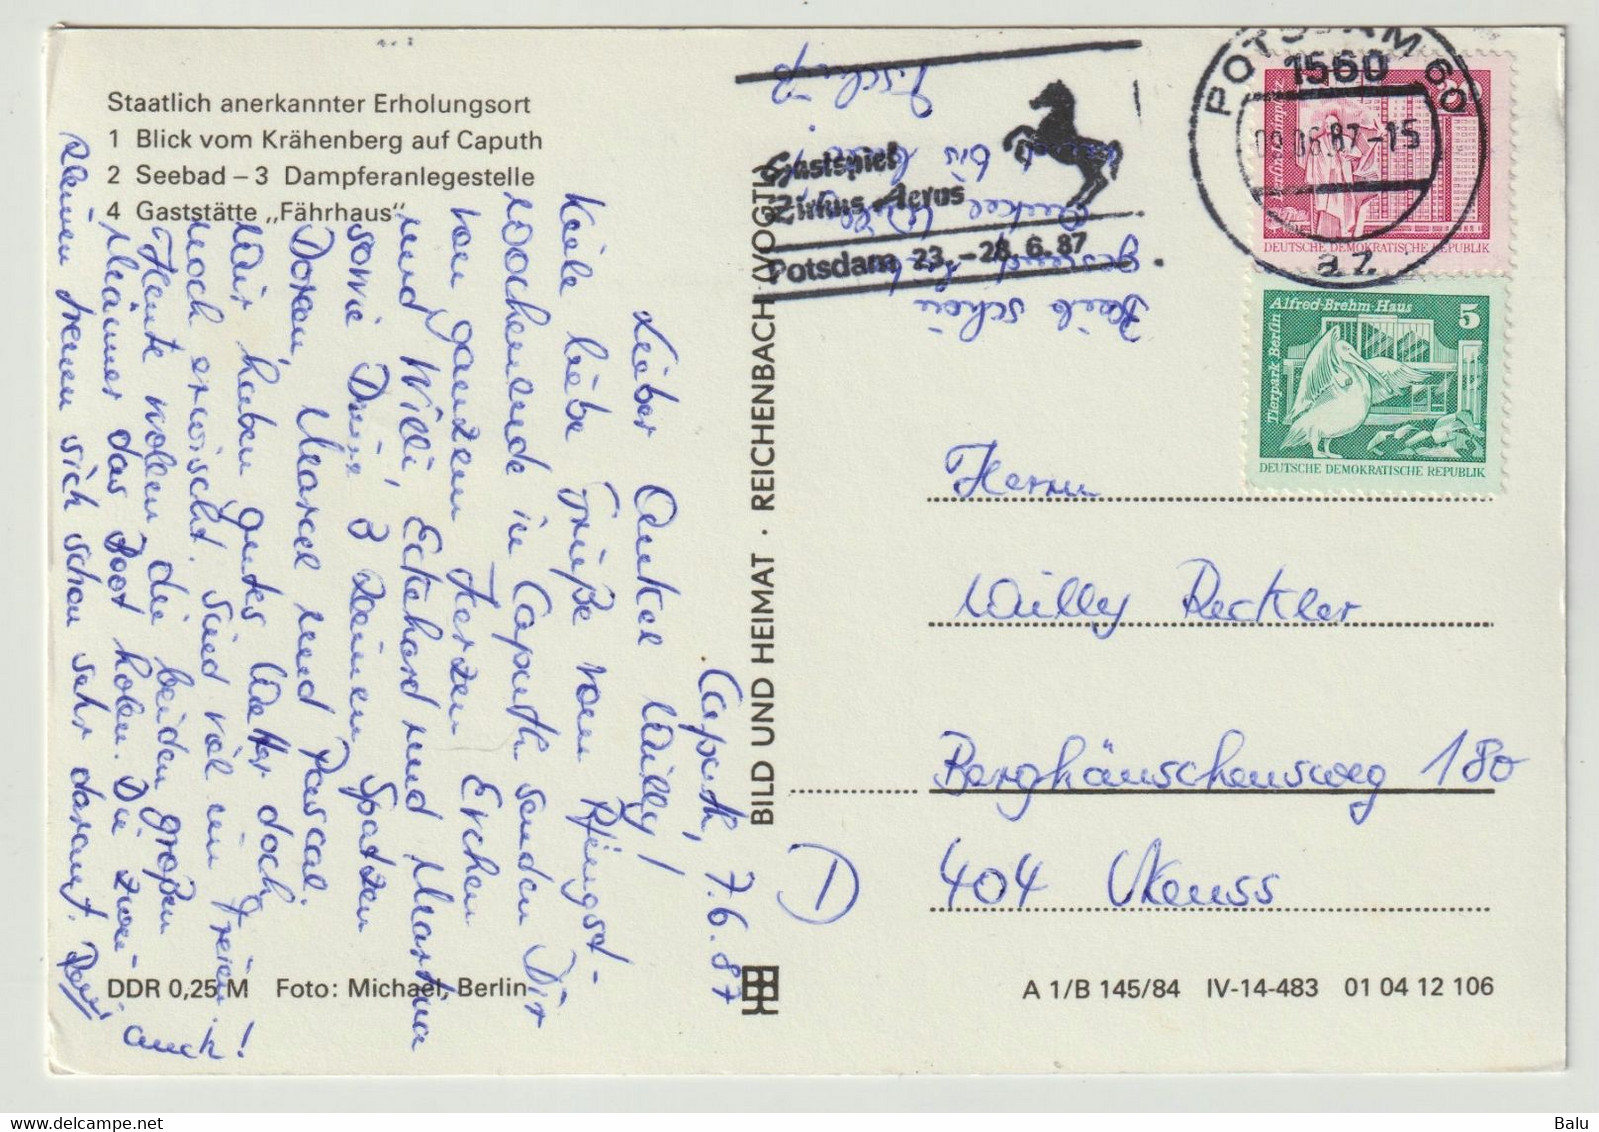 Staatlich anerkannter Erholungsort
1 Blick vom Krähenberg auf Caputh
2 Seebad – 3 Dampferanlegestelle
4 Gaststätte „Fährhaus"
Caputh, 7.6.87
Lieber Onkel Willy!
Viele liebe Grüße vom Pfingst-
wochenende in Caputh senden Dir
von ganzem Herzen Erchen
und Willi, Eckehard und Martina
sowie Deine 3 kleinen Spatzen
Doreen, Marcel und Pascal.
Wir haben gutes Wetter doch
noch erwischt. Sind viel im Freien!
Heute wollen die beiden großen
Männer das Boot holen. Die zwei
kleinen freuen sich schon sehr darauf.
auch!
Bleib schön
gesund lieber
Onkel Willy
bis
Tschüß
BILD UND HEIMAT · REICHENBACH (VOGTL)
Gastspiel
Zirkus Aeros
Potsdam 23. – 28. 6. 87
POTSDAM 60
1560
09.06.87-15
az
Berlin-Leninplatz
DEUTSCHE DEMOKRATISCHE REPUBLIK
Alfred-Brehm-Haus
5
Tierpark Berlin
DEUTSCHE DEMOKRATISCHE REPUBLIK
Herrn
Willy Reckler
Berghäuschensweg 180
D
404 Neuss
DDR 0,25 M Foto: Michael, Berlin
A 1/B 145/84 IV-14-483 01 04 12 106
Balu